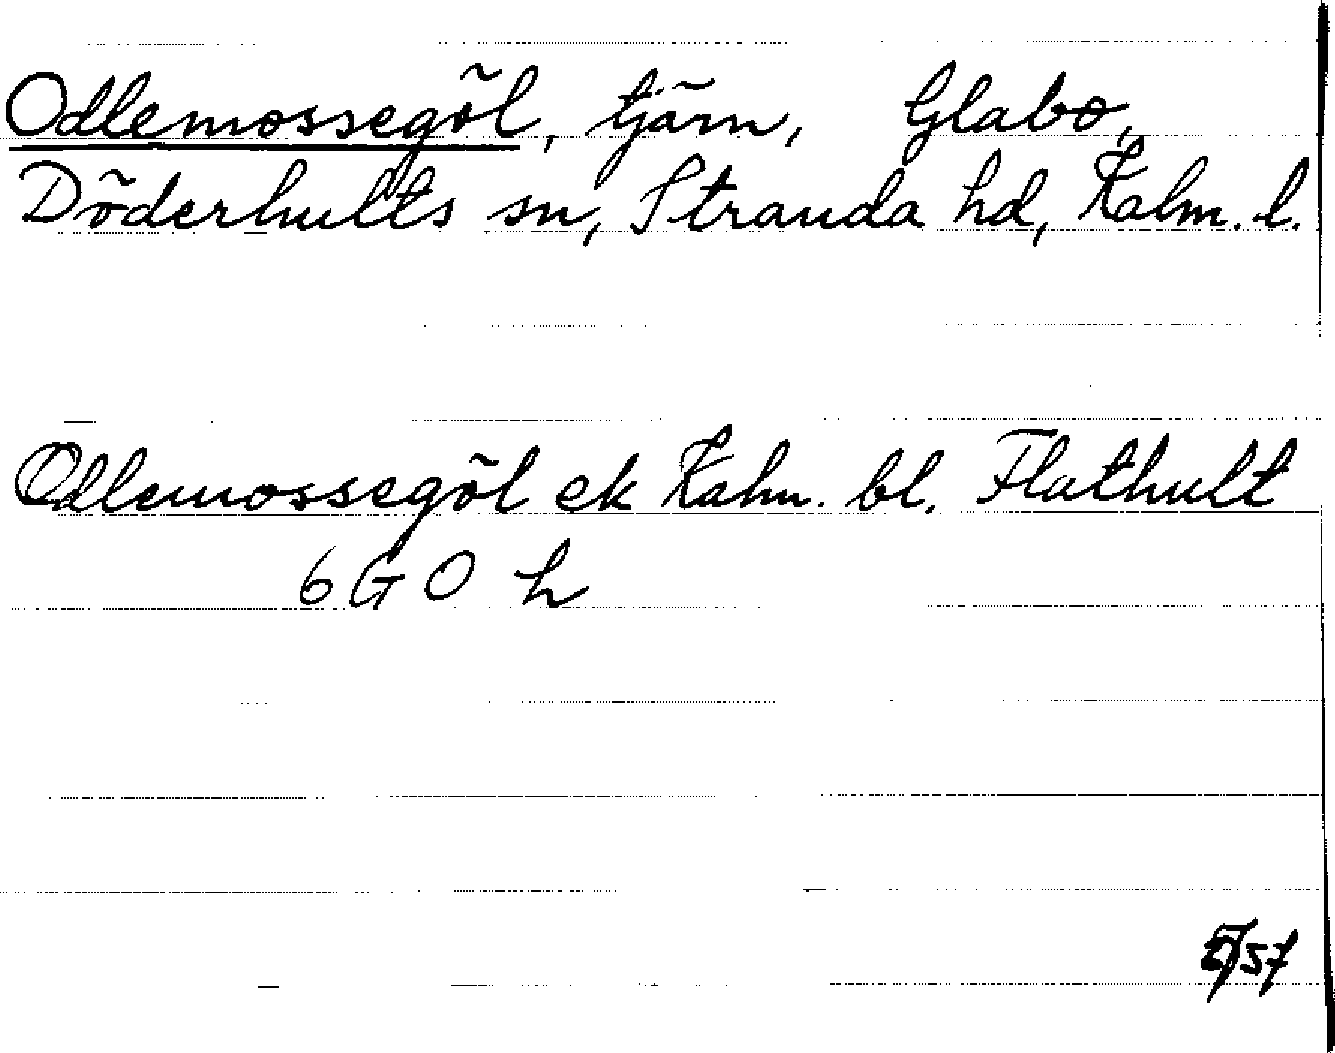 Odlemossegöl, tjärn, Glabo,
Döderhults sn, Stranda hd, Kalm. l.
Odlemossegöl ek Kalm. bl. Flathult
6 G O h